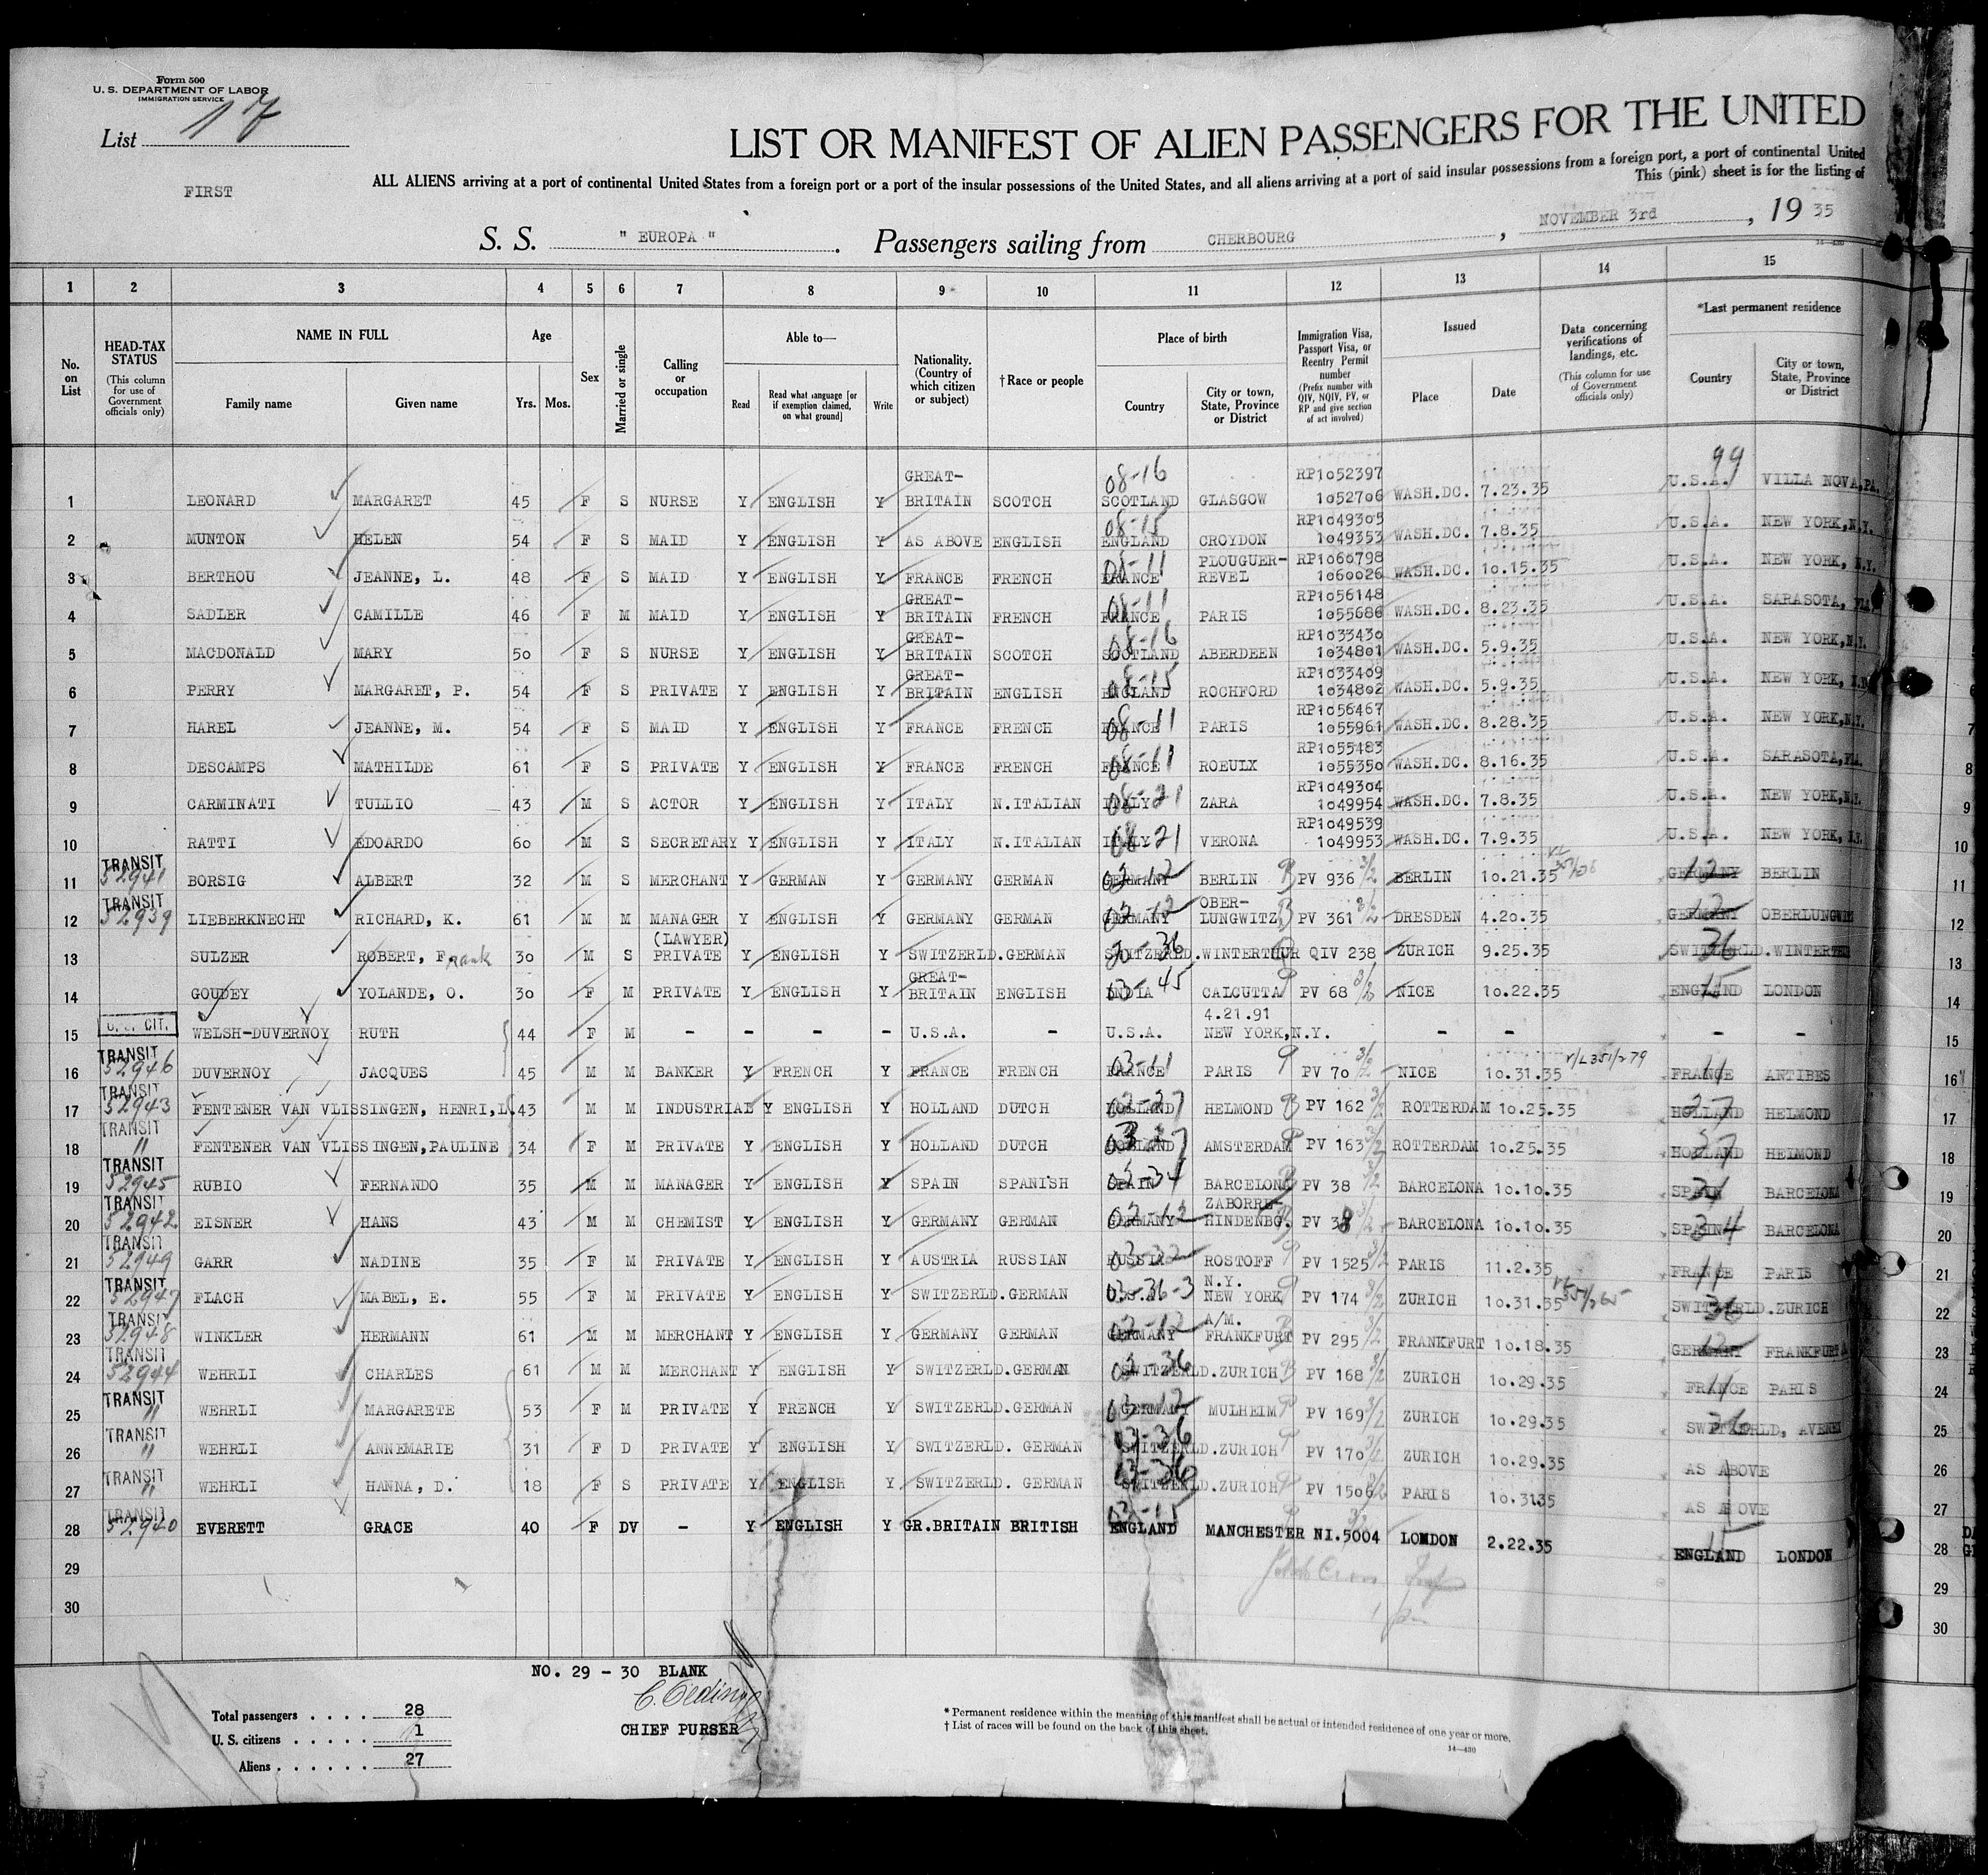 Form 500
U. S. DEPARTMENT OF LABOR
IMMIGRATION SERVICE
List 17
LIST OR MANIFEST OF ALIEN PASSENGERS FOR THE UNITED
ALL ALIENS arriving at a port of continental United States from a foreign port or a port of the insular possessions of the United States, and all aliens arriving at a port of said insular possessions from a foreign port, a port of continental United
This (pink) sheet is for the listing of
FIRST
S. S. " EUROPA " . Passengers sailing from CHERBOURG , NOVEMBER 3rd , 19 35
1 2 3 4 5 6 7 8 9 10 11 12 13 14 15
No. on List
HEAD-TAX STATUS (This column for use of Government officials only)
NAME IN FULL Family name Given name
Age Yrs. Mos.
Sex
Married or single
Calling or occupation
Able to— Read Read what language [or if exemption claimed, on what ground] Write
Nationality. (Country of which citizen or subject)
†Race or people
Place of birth Country City or town, State, Province or District
Immigration Visa, Passport Visa, or Reentry Permit number (Prefix number with QIV, NQIV, PV, or RP and give section of act involved)
Issued Place Date
Data concerning verifications of landings, etc. (This column for use of Government officials only)
*Last permanent residence Country City or town, State, Province or District
1 LEONARD MARGARET 45 F S NURSE Y ENGLISH Y GREAT-BRITAIN SCOTCH 08-16 SCOTLAND GLASGOW RP1052397 1052706 WASH.DC. 7.23.35 99 U.S.A. VILLA NOVA,PA.
2 MUNTON HELEN 54 F S MAID Y ENGLISH Y AS ABOVE ENGLISH 08-15 ENGLAND CROYDON RP1049305 1049353 WASH.DC. 7.8.35 U.S.A. NEW YORK,N.Y.
3 BERTHOU JEANNE, L. 48 F S MAID Y ENGLISH Y FRANCE FRENCH 08-11 FRANCE PLOUGUER-REVEL RP1060798 1060026 WASH.DC. 10.15.35 U.S.A. NEW YORK, N.Y.
4 SADLER CAMILLE 46 F M MAID Y ENGLISH Y GREAT-BRITAIN FRENCH 08-11 FRANCE PARIS RP1056148 1055686 WASH.DC. 8.23.35 U.S.A. SARASOTA, FLA.
5 MACDONALD MARY 50 F S NURSE Y ENGLISH Y GREAT-BRITAIN SCOTCH 08-16 SCOTLAND ABERDEEN RP1033430 1034801 WASH.DC. 5.9.35 U.S.A. NEW YORK,N.Y.
6 PERRY MARGARET, P. 54 F S PRIVATE Y ENGLISH Y GREAT-BRITAIN ENGLISH 08-15 ENGLAND ROCHFORD RP1033409 1034802 WASH.DC. 5.9.35 U.S.A. NEW YORK,
7 HAREL JEANNE, M. 54 F S MAID Y ENGLISH Y FRANCE FRENCH 08-11 FRANCE PARIS RP1056467 1055961 WASH.DC. 8.28.35 U.S.A. NEW YORK,N.Y.
8 DESCAMPS MATHILDE 61 F S PRIVATE Y ENGLISH Y FRANCE FRENCH 08-11 FRANCE ROEULX RP1055483 1055350 WASH.DC. 8.16.35 U.S.A. SARASOTA,FLA.
9 CARMINATI TULLIO 43 M S ACTOR Y ENGLISH Y ITALY N.ITALIAN 08-21 ITALY ZARA RP1049304 1049954 WASH.DC. 7.8.35 U.S.A. NEW YORK,N.Y.
10 RATTI EDOARDO 60 M S SECRETARY Y ENGLISH Y ITALY N.ITALIAN 08 21 ITALY VERONA RP1049539 1049953 WASH.DC. 7.9.35 U.S.A. NEW YORK, N.Y.
11 TRANSIT 52941 BORSIG ALBERT 32 M S MERCHANT Y GERMAN Y GERMANY GERMAN 03-12 GERMANY BERLIN PV 936 3/2 BERLIN 10.21.35 GERMANY 12 BERLIN
12 TRANSIT 52939 LIEBERKNECHT RICHARD, K. 61 M M MANAGER Y ENGLISH Y GERMANY GERMAN 03-12 GERMANY OBER-LUNGWITZ PV 361 3/2 DRESDEN 4.20.35 GERMANY 12 OBERLUNGWITZ
13 SULZER ROBERT, Frank 30 M S (LAWYER) PRIVATE Y ENGLISH Y SWITZERLD. GERMAN 36 SWITZERLD. WINTERTHUR QIV 238 ZURICH 9.25.35 SWITZERLD. 36 WINTERTHUR
14 GOUDEY YOLANDE, O. 30 F M PRIVATE Y ENGLISH Y GREAT-BRITAIN ENGLISH 03-45 INDIA CALCUTTA PV 68 3/2 NICE 10.22.35 ENGLAND 15 LONDON
15 U.S. CIT. WELSH-DUVERNOY RUTH 44 F M - - - - U.S.A. - U.S.A. 4.21.91 NEW YORK,N.Y. - - - -
16 TRANSIT 52946 DUVERNOY JACQUES 45 M M BANKER Y FRENCH Y FRANCE FRENCH 03-11 FRANCE PARIS PV 70 3/2 NICE 10.31.35 V/L351/279 FRANCE 11 ANTIBES
17 TRANSIT 52943 FENTENER VAN VLISSINGEN, HENRI, 43 M M INDUSTRIAL Y ENGLISH Y HOLLAND DUTCH 03-27 HOLLAND HELMOND PV 162 3/2 ROTTERDAM 10.25.35 HOLLAND 27 HELMOND
18 TRANSIT " FENTENER VAN VLISSINGEN,PAULINE 34 F M PRIVATE Y ENGLISH Y HOLLAND DUTCH 03 27 HOLLAND AMSTERDAM PV 163 3/2 ROTTERDAM 10.25.35 HOLLAND 27 HELMOND
19 TRANSIT 52945 RUBIO FERNANDO 35 M M MANAGER Y ENGLISH Y SPAIN SPANISH 03-34 SPAIN BARCELONA PV 38 3/2 BARCELONA 10.10.35 SPAIN BARCELONA
20 TRANSIT 52942 EISNER HANS 43 M M CHEMIST Y ENGLISH Y GERMANY GERMAN 03-12 GERMANY ZABORRE-HINDENBG. PV 38 BARCELONA 10.10.35 SPAIN 34 BARCELONA
21 TRANSIT 52949 GARR NADINE 35 F M PRIVATE Y ENGLISH Y AUSTRIA RUSSIAN 03-32 RUSSIA ROSTOFF PV 1525 3/2 PARIS 11.2.35 FRANCE 11 PARIS
22 TRANSIT 52947 FLACH MABEL, E. 55 F M PRIVATE Y ENGLISH Y SWITZERLD. GERMAN 03-36-3 U.S.A. N.Y. NEW YORK PV 174 3/2 ZURICH 10.31.35 SWITZERLD. 36 ZURICH
23 TRANSIT 52948 WINKLER HERMANN 61 M M MERCHANT Y ENGLISH Y GERMANY GERMAN 03-12 GERMANY A/M. FRANKFURT PV 295 3/2 FRANKFURT 10.18.35 GERMANY 12 FRANKFURT
24 TRANSIT 52944 WEHRLI CHARLES 61 M M MERCHANT Y ENGLISH Y SWITZERLD. GERMAN 03-36 SWITZERLD. ZURICH PV 168 3/2 ZURICH 10.29.35 FRANCE 11 PARIS
25 TRANSIT " WEHRLI MARGARETE 53 F M PRIVATE Y FRENCH Y SWITZERLD. GERMAN 03-12 GERMANY MULHEIM PV 169 3/2 ZURICH 10.29.35 SWITZERLD, 36
26 TRANSIT " WEHRLI ANNEMARIE 31 F D PRIVATE Y ENGLISH Y SWITZERLD. GERMAN 03-36 SWITZERLD. ZURICH PV 170 3/2 ZURICH 10.29.35 AS ABOVE
27 TRANSIT " WEHRLI HANNA, D. 18 F S PRIVATE Y ENGLISH Y SWITZERLD. GERMAN 03-36 SWITZERLD. ZURICH PV 1506 3/2 PARIS 10.3135 AS ABOVE
28 TRANSIT 52940 EVERETT GRACE 40 F DV - Y ENGLISH Y GR.BRITAIN BRITISH 03-15 ENGLAND MANCHESTER NI.5004 LONDON 2.22.35 ENGLAND 15 LONDON
29
30
NO. 29 - 30 BLANK
CHIEF PURSER
Total passengers . . . . 28
U. S. citizens . . . . . 1
Aliens . . . . . . 27
* Permanent residence within the meaning of this manifest shall be actual or intended residence of one year or more.
† List of races will be found on the back of this sheet.
14—430